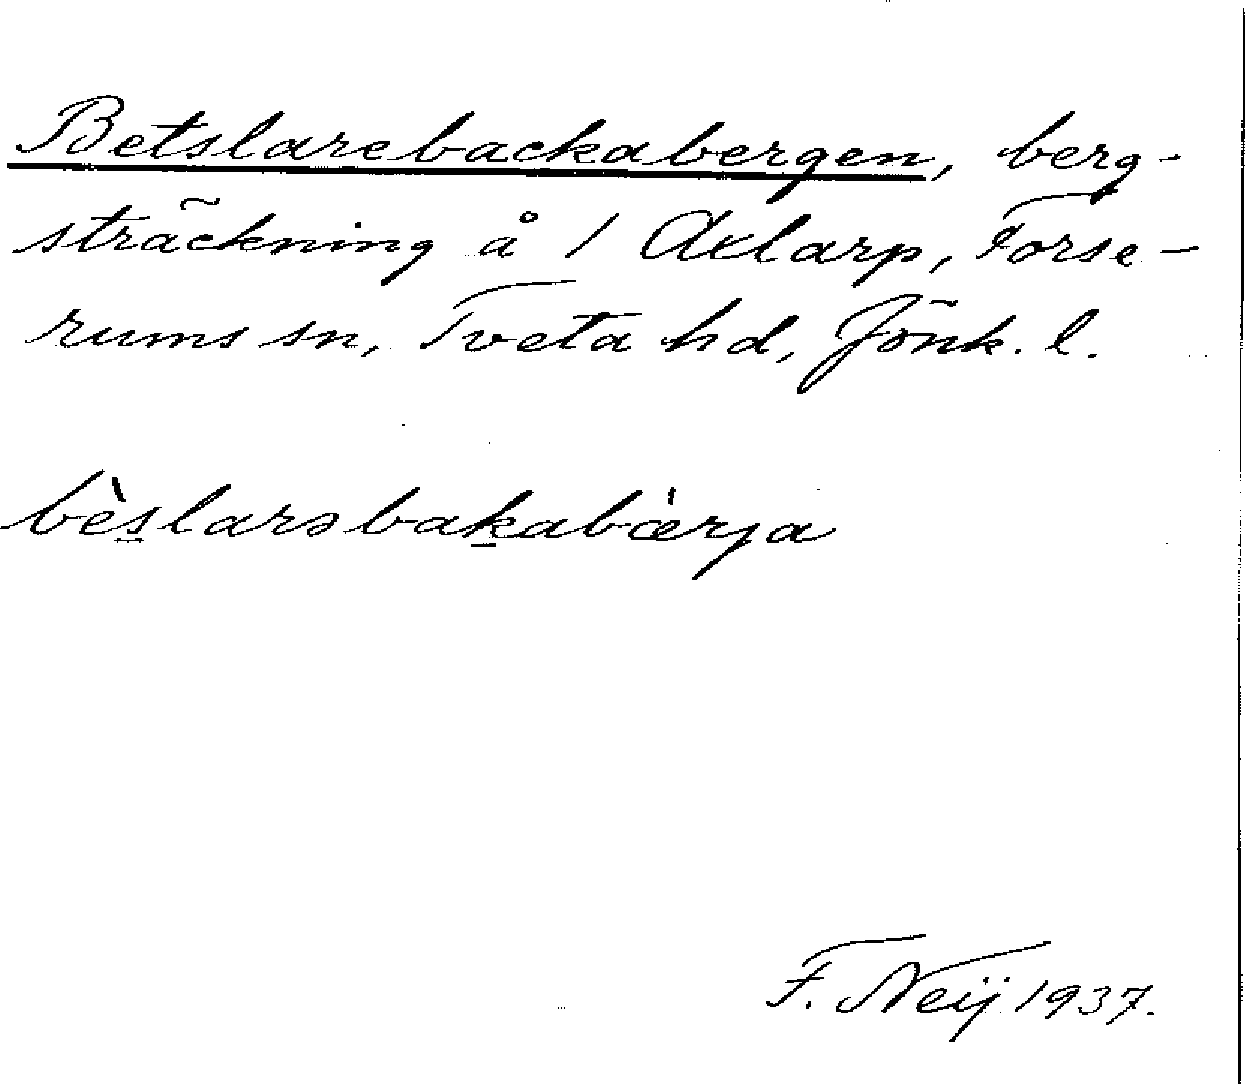 Betslarebackabergen, berg-
sträckning å 1 Axlarp, Forse-
rums sn, Tveta hd, Jönk. l.
bès̲larəbak̲abǽrja
F. Neij 1937.